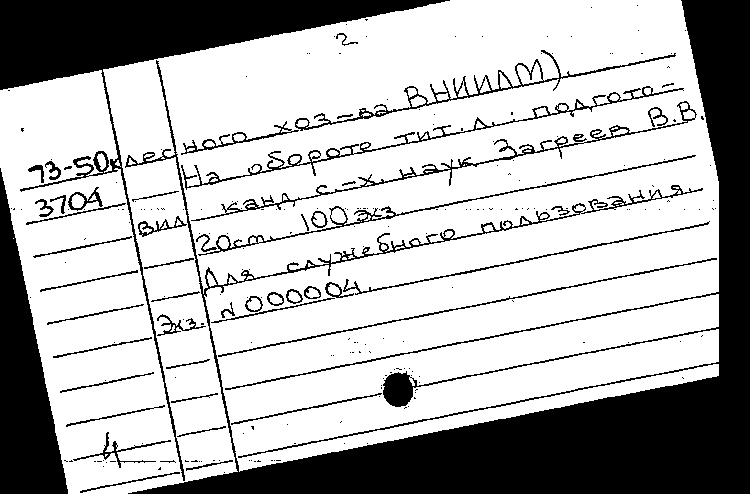 2
лесного хоз-ва ВНИИЛМ).
73-50к На обороте тит.л.: подгото-
3704 вил канд с.-х. наук Загреев В.В.
20ст. 100 экз
Для служебного пользования.
Экз. N 000004.
4